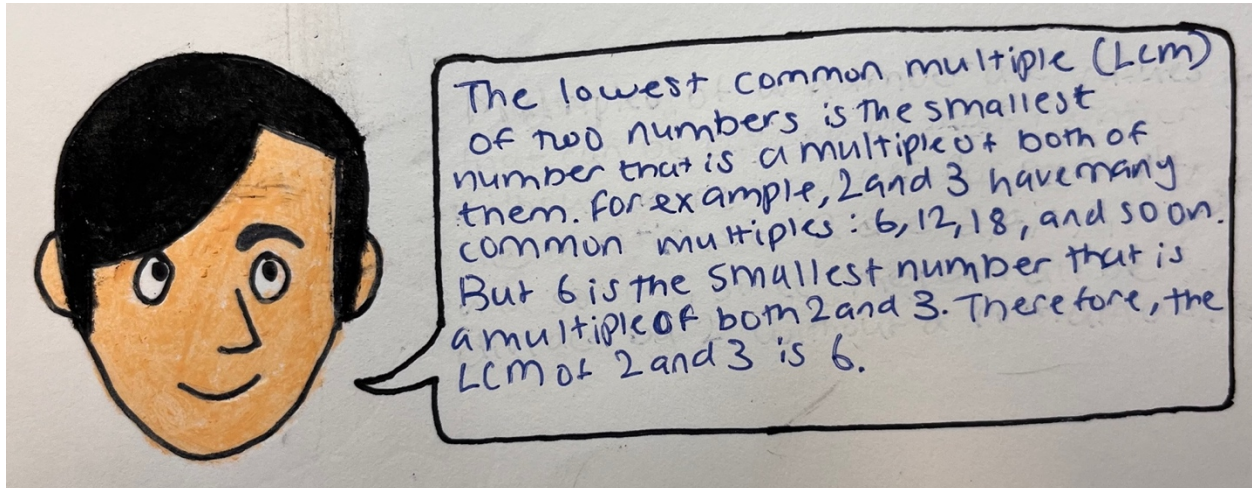 The lowest common multiple (LCM)
of two numbers is the smallest
number that is a multiple of both of
them. For example, 2 and 3 have many
common multiples : 6, 12, 18, and so on.
But 6 is the smallest number that is
a multiple of both 2 and 3. Therefore, the
LCM of 2 and 3 is 6.